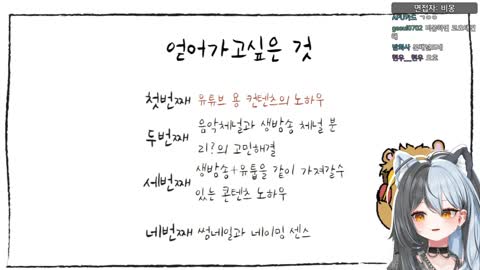 면접자: 비몽
얻어가고싶은 것
첫번째 유튜브 용 컨텐츠의 노하우
두번째 음악채널과 생방송 채널 분
리?의 고민해결
세번째 생방송+유튭을 같이 가져갈수
있는 콘텐츠 노하우
네번째 썸네일과 네이밍 센스